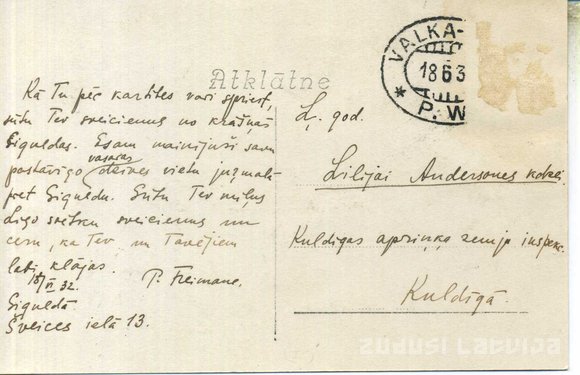 Atklātne
Kā Tu pēc kartītes vari spriest,
sūtu Tev sveicienus no krāšņās
Siguldas. Esam mainījuši savu
vasaras
pastāvīgo dzīves vietu jūrmalā
pret Siguldu. Sūtu Tev mīļus
Līgo svētku sveicienus un
ceru, ka Tev un Tavējiem
labi klājas.
18/VI 32. P. Freimane.
Siguldā
Šveices ielā 13.
VALKA-
18 6 3
* P. W
Ļ. god.
Lilijai Andersones kdzei
Kuldīgas apriņķa zemju inspekc.
Kuldīgā.
zudusi Latvija